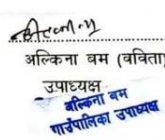 अल्किना बम (बविता)
उपाध्यक्ष
अल्किना बम
गाउँपालिका उपाध्यक्ष